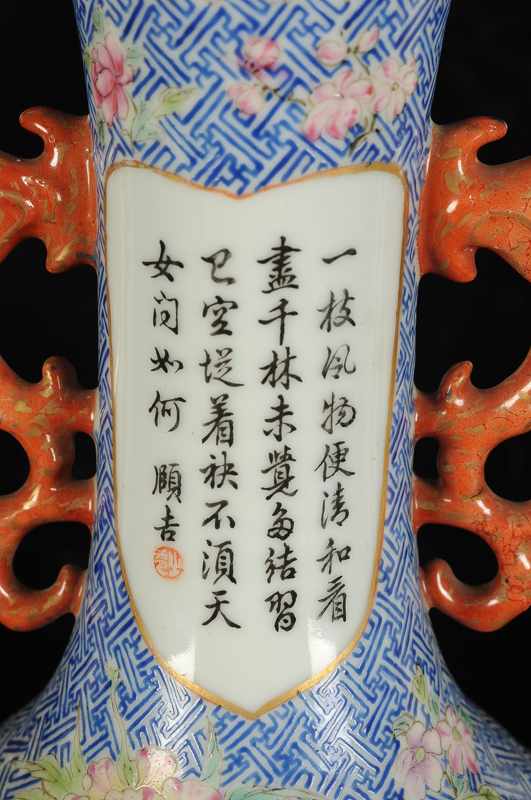 一枝风物便清和看
盡千林未覺多結習
已空從着袂不須天
女问如何 頤吉